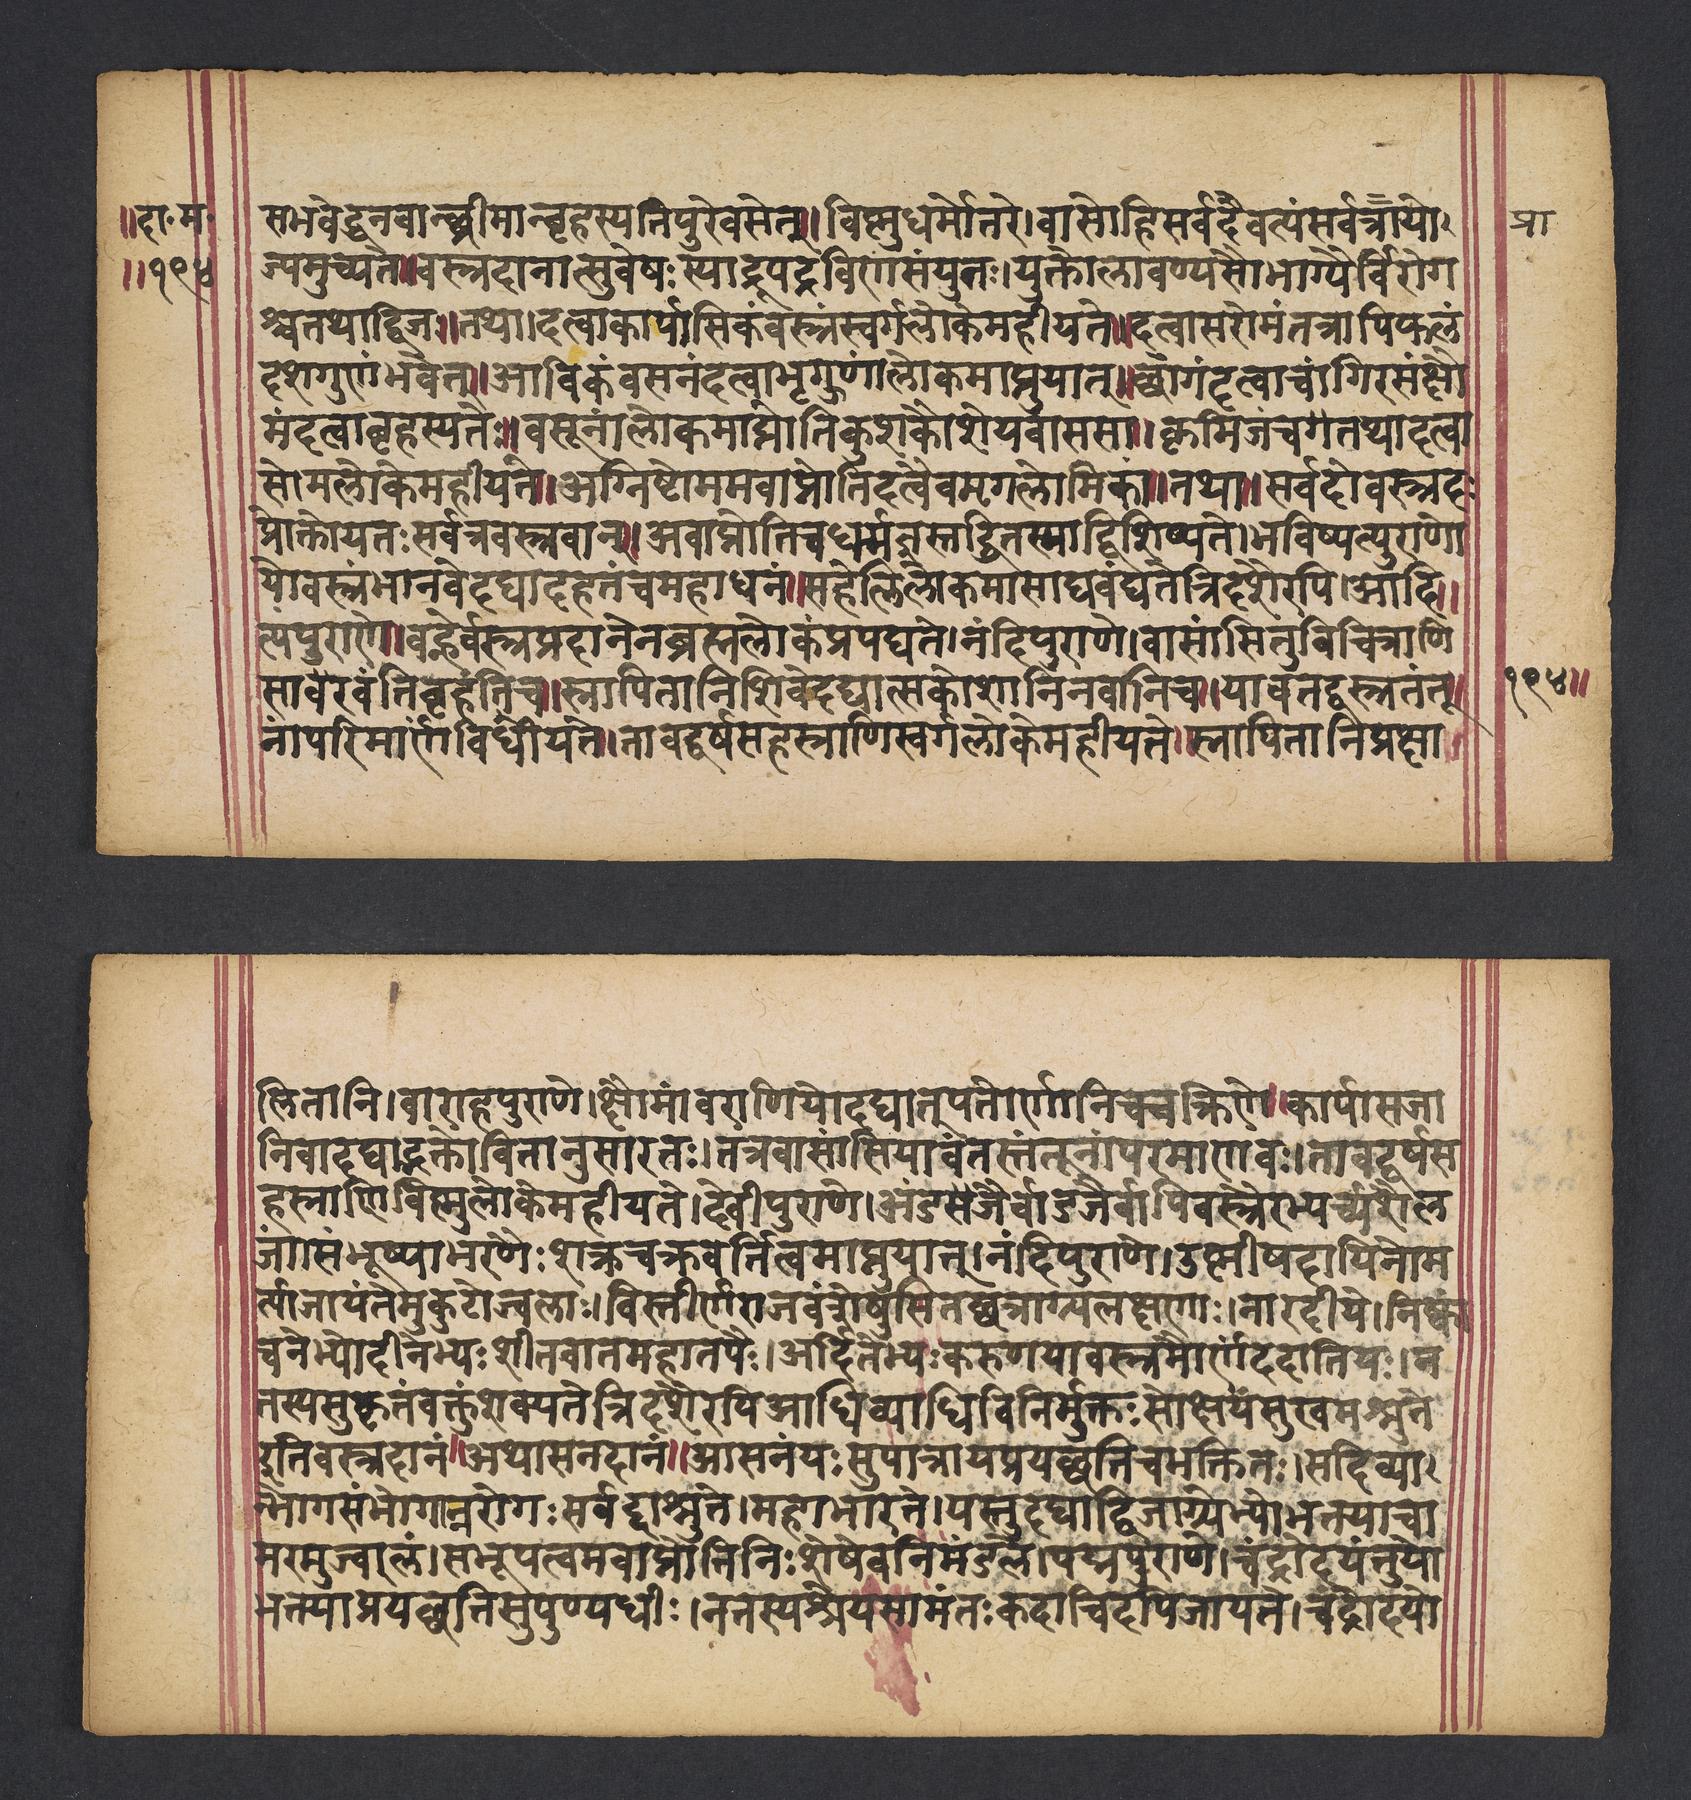 ॥दा॰म॰
॥१९४
सभवेद्धनवान्श्रीमान्बृहस्पतिपुरेवसेत्॥विष्णुधर्मोत्तरे।वासोहिसर्वदैवत्यंसर्वत्रायो
प्रा
ज्यमुच्यते॥वस्त्रदानात्सुवेषःस्याद्रूपद्रविणसंयुतः।युक्तोलावण्यसौभाग्यैर्विरोग
श्चतथाद्विजः॥तथा।दत्वाकार्पासिकंवस्त्रंस्वर्गलोकेमहीयते॥दत्वासरोमंतत्रापिफलं
दशगुणंभवेत्॥आविकंवसनंदत्वाभृगुणांलोकमाप्नुयात्॥छागंदत्वाचांगिरसंक्षौ
मंदत्वाबृहस्पतेः॥वसूनांलोकमाप्नोतिकुशकौशेयवाससा॥कृमिजंचगतथादत्वा
सोमलोकेमहीयते॥अग्निष्टोममवाप्नोतिदत्वैवमृगलोमिकां॥तथा॥सर्वदोवस्त्रदः
प्रोक्तोयतःसर्वत्रवस्त्रवान्॥अवाप्नोतिचधर्मज्ञस्तद्धितस्माद्विशिष्यते।भविष्यत्पुराणे
योवस्त्रंभानवेदद्यादहतंचमहाधनं॥सहेलिलोकमासाद्यवंद्यतेत्रिदशैरपि।आदि॥
त्यपुराणे॥वह्नेर्वस्त्रप्रदानेनब्रह्मलोकंप्रपद्यते।नंदिपुराणे।वासांसितुविचित्राणि
सावरेवंतिबृहंतिच॥स्नापितानिशिवेदद्यात्सकोशानिनवानिच॥यावतद्वस्त्रतंतू
१९४॥
नांपरिमाणंविधीयते।तावद्वर्षसहस्त्राणिस्वर्गलोकेमहीयते॥स्नापितानिप्रक्षा
लितानि।वाराहपुराणे।क्षौमांवराणियोदद्यातुपतीर्णानिचचक्रिणे।कार्पासजा
निवादद्याद्भक्तोवितानुसारतः।तत्रवासांसियावंतस्तंतूनांपरमाणवः।तावद्वर्षस
हस्त्राणिविष्णुलोकेमहीयते।देवीपुराणे।अंडसजैर्वोडजैर्वापिवस्त्रैरभ्यर्च्यशैल
जां।संभूष्याभरणैःशक्रचक्रवर्तित्वमाप्नुयात्।नंदिपुराणे।उष्णीषदायिनोम
र्त्याजायंतेमुकुटोज्वलाः।विस्तीर्णराजवंशेषुसितछत्राग्र्यलक्षणाः।नारदीये।निष्कं
चनेभ्योदीनेभ्यःशीतवातमहातपैः।अर्दितेभ्यःकरुणयावस्त्रमार्णंददातियः।न
तस्यसुकृतंवक्तुंशक्यतेत्रिदशैरपिआधिव्याधिविनिर्मुक्तःसोक्षयंसुखमश्नुते
इतिवस्त्रदानं॥अथासनदानं॥आसनंयःसुपात्रायप्रयछतिचभक्तितः।सदिव्या
न्भोगसंभोगान्नरोगःसर्वदाश्नुते।महाभारते।यस्तुदद्याद्विजाग्र्येभ्योभक्तयाचा
मरमुज्वलं।सभूपत्वमवाप्नोतिनिःशेषेवनिमंडले।पद्मपुराणे।चंद्रोदयंतुयो
भक्तयाप्रयछतिसुपुण्यधीः।नतस्यश्रेयसामंतःकदाचिदपिजायते।चंद्रोदयो